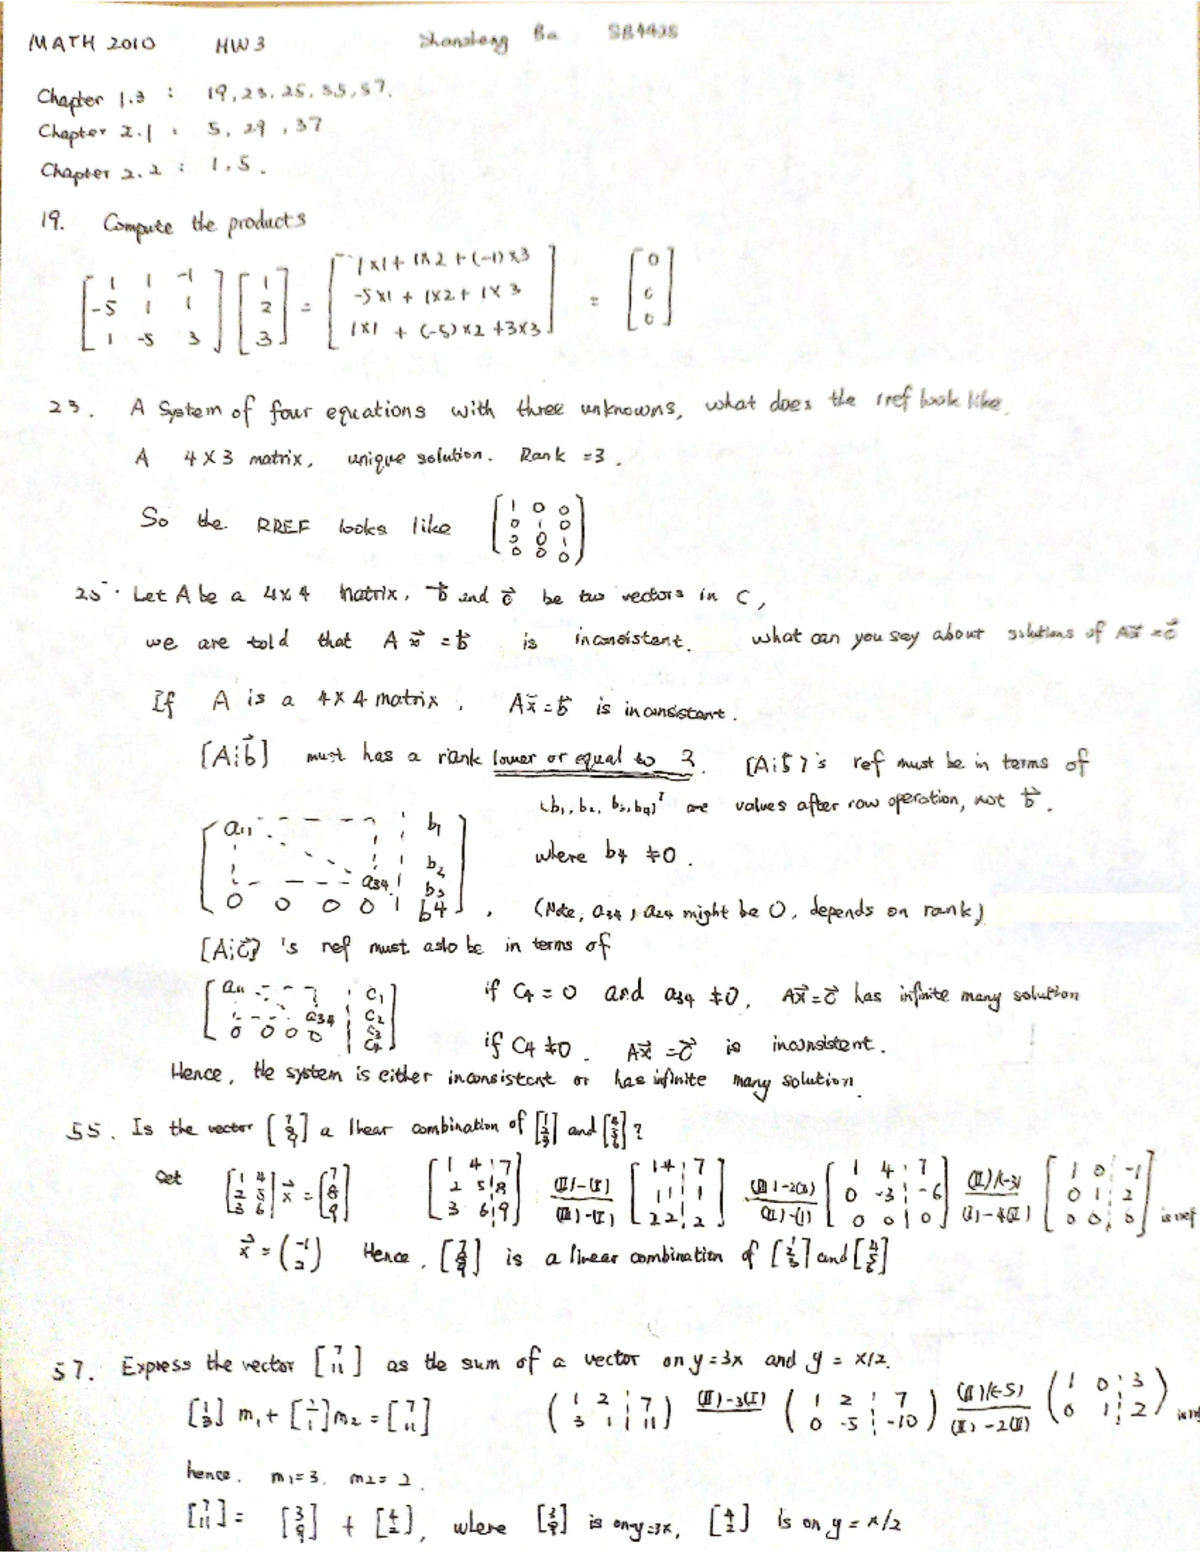 MATH 2010 HW3 Shansheng Ba SB4425
Chapter 1.3 : 19, 23, 25, 55, 57.
Chapter 2.1 : 5, 29, 37
Chapter 2.2 : 1, 5.
19. Compute the products
[1 1 -1; -5 1 1; 1 -5 3] [1; 2; 3] = [1×1 + 1×2 + (-1)×3; -5×1 + 1×2 + 1×3; 1×1 + (-5)×2 + 3×3] = [0; 0; 0]
23. A System of four equations with three unknowns, what does the rref look like.
A 4×3 matrix, unique solution. Rank = 3.
So the RREF looks like [1 0 0; 0 1 0; 0 0 1; 0 0 0]
25. Let A be a 4×4 matrix, b⃗ and c⃗ be two vectors in C,
we are told that A x⃗ = b⃗ is inconsistent. what can you say about solutions of Ax⃗ = c⃗
If A is a 4×4 matrix, Ax⃗ = b⃗ is inconsistant.
[A¦b⃗] must has a rank lower or equal to 3. [A¦b⃗]'s ref must be in terms of
(b1, b2, b3, b4)ᵀ are values after row operation, not b⃗.
[a11 b1; b2; a34 b3; 0 0 0 0 ¦ b4], where b4 ≠ 0.
(Note, a34, a24 might be 0, depends on rank)
[A¦c⃗]'s ref must aslo be in terms of
[a11 ¦ c1; a34 ¦ c2; c3; 0 0 0 0 ¦ c4] if C4 = 0 and a34 ≠ 0, Ax⃗ = c⃗ has infinite many solution
if C4 ≠ 0. Ax⃗ = c⃗ is inconsistent.
Hence, the system is either inconsistent or has infinite many solution.
55. Is the vector [7; 8; 9] a linear combination of [1; 2; 3] and [4; 5; 6] ?
Set [1 4; 2 5; 3 6] x⃗ = [7; 8; 9] [1 4 ¦ 7; 2 5 ¦ 8; 3 6 ¦ 9] (II)-(I) (III)-(I) [1 4 ¦ 7; 1 1 ¦ 1; 2 2 ¦ 2] (III)-2(II) (II)-(I) [1 4 ¦ 7; 0 -3 ¦ -6; 0 0 ¦ 0] (II)/(-3) (I)-4(II) [1 0 ¦ -1; 0 1 ¦ 2; 0 0 ¦ 0] is rref
x⃗ = (-1; 2) Hence, [7; 8; 9] is a linear combination of [1; 2; 3] and [4; 5; 6]
57. Express the vector [7; 11] as the sum of a vector on y = 3x and y = x/2.
[1; 3] m1 + [2; 1] m2 = [7; 11] (1 2 ¦ 7; 3 1 ¦ 11) (II)-3(I) (1 2 ¦ 7; 0 -5 ¦ -10) (II)/(-5) (I)-2(II) (1 0 ¦ 3; 0 1 ¦ 2)
hence. m1 = 3. m2 = 2.
[7; 11] = [3; 9] + [4; 2], where [3; 9] is on y=3x, [4; 2] is on y = x/2